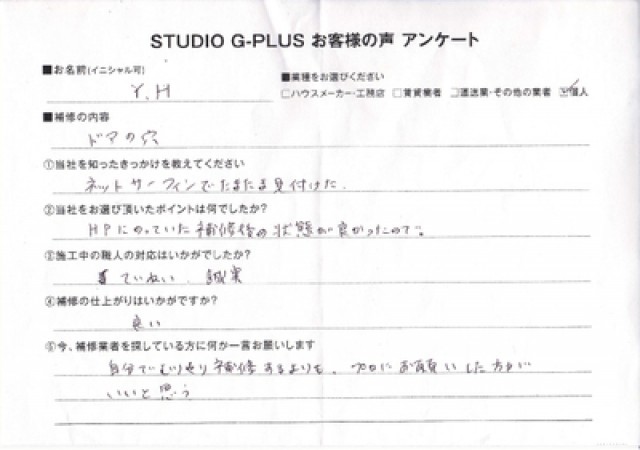 STUDIO G-PLUS お客様の声 アンケート
■お名前(イニシャル可)
Y.H
■業種をお選びください
□ハウスメーカー・工務店 □賃貸業者 □運送業・その他の業者 ☑個人
■補修の内容
ドアの穴
①当社を知ったきっかけを教えてください
ネットサーフィンでたまたま見付けた.
②当社をお選び頂いたポイントは何でしたか?
HPにのっていた補修後の状態が良かったので。
③施工中の職人の対応はいかがでしたか?
ていねい、誠実
④補修の仕上がりはいかがですか?
良い
⑤今、補修業者を探している方に何か一言お願いします
自分でむりやり補修するよりも、プロにお願いした方が
いいと思う